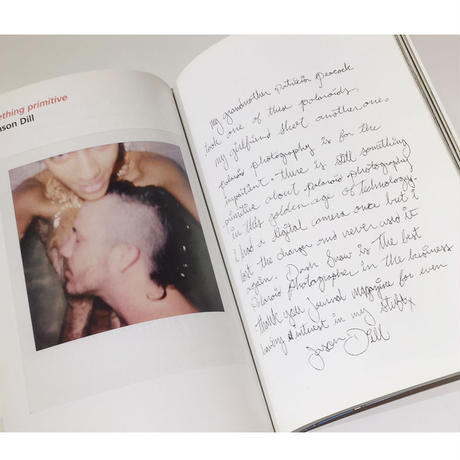 ething primitive
ason Dill
my grandmother Patricia Peacock
took one of these polaroids.
my girlfriend shot another one.
polaroid photography is for the
important. there is still something
primitive about polaroid photography
in this golden age of technology.
i had a digital camera once but i
lost the charger and never used it
again. Dash Snow is the best
Polaroid Photographer in the business
thank you Journal magazine for even
having interest in my stuff x
Jason Dill